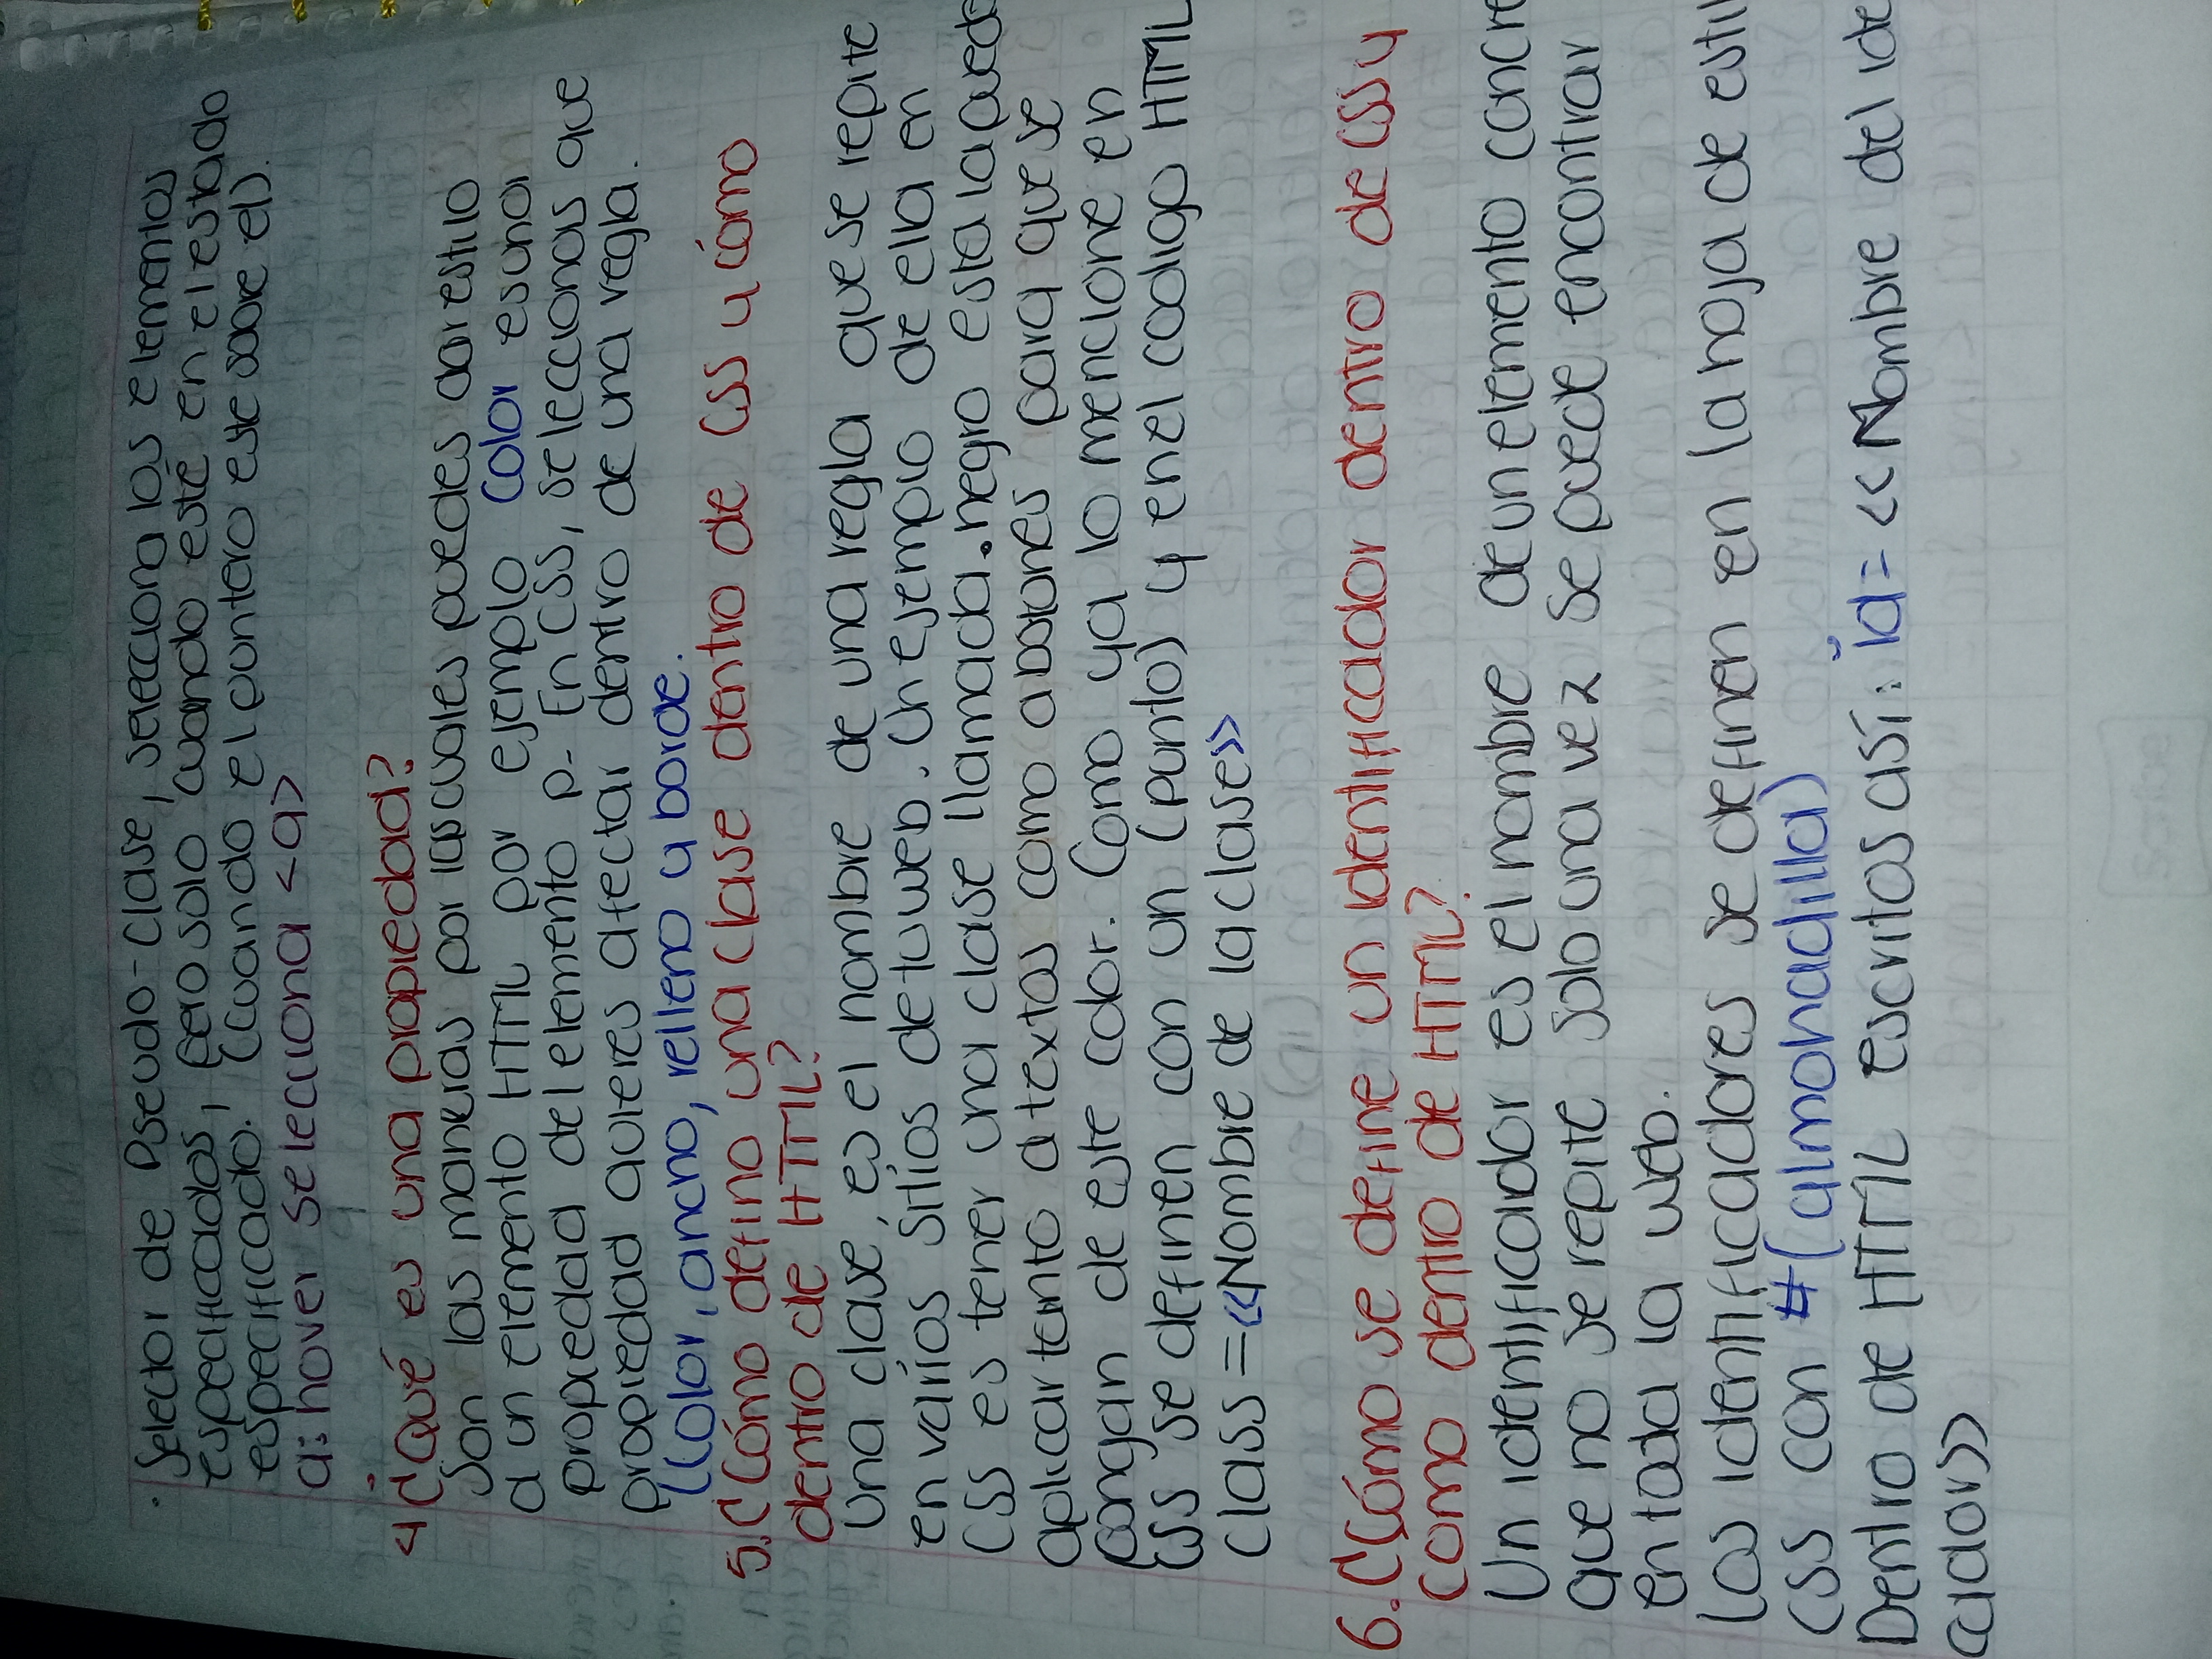 · Selector de Pseudo-clase, selecciona los elementos
especificados, pero solo cuando esté en el estado
especificado. (Cuando el puntero este sobre el).
a: hover selecciona <a>
4 ¿Qué es una propiedad?
Son las maneras por las cuales puedes dar estilo
a un elemento HTML por ejemplo color es una
propiedad del elemento p. En CSS, seleccionas que
propiedad quieres afectar dentro de una regla.
(Color, ancho, relleno y borde.
5. ¿Cómo defino una clase dentro de CSS y cómo
dentro de HTML?
Una clase, es el nombre de una regla que se repite
en varios sitios de tu web. Un ejemplo de ella en
CSS es tener una clase llamada .negro esta la puede
aplicar tanto a textos como a botones para que se
pongan de este color. Como ya lo mencione en
CSS se definen con un (punto) y en el codigo HTML
class = «Nombre de la clase»
6. ¿Cómo se define un identificador dentro de CSS y
como dentro de HTML?
Un identificador es el nombre de un elemento concre
que no se repite solo una vez se puede encontrar
en toda la web.
Los identificadores se definen en la hoja de estil
CSS con # (almohadilla)
Dentro de HTML escritos así: id = «Nombre del ide
cador»
Scribe